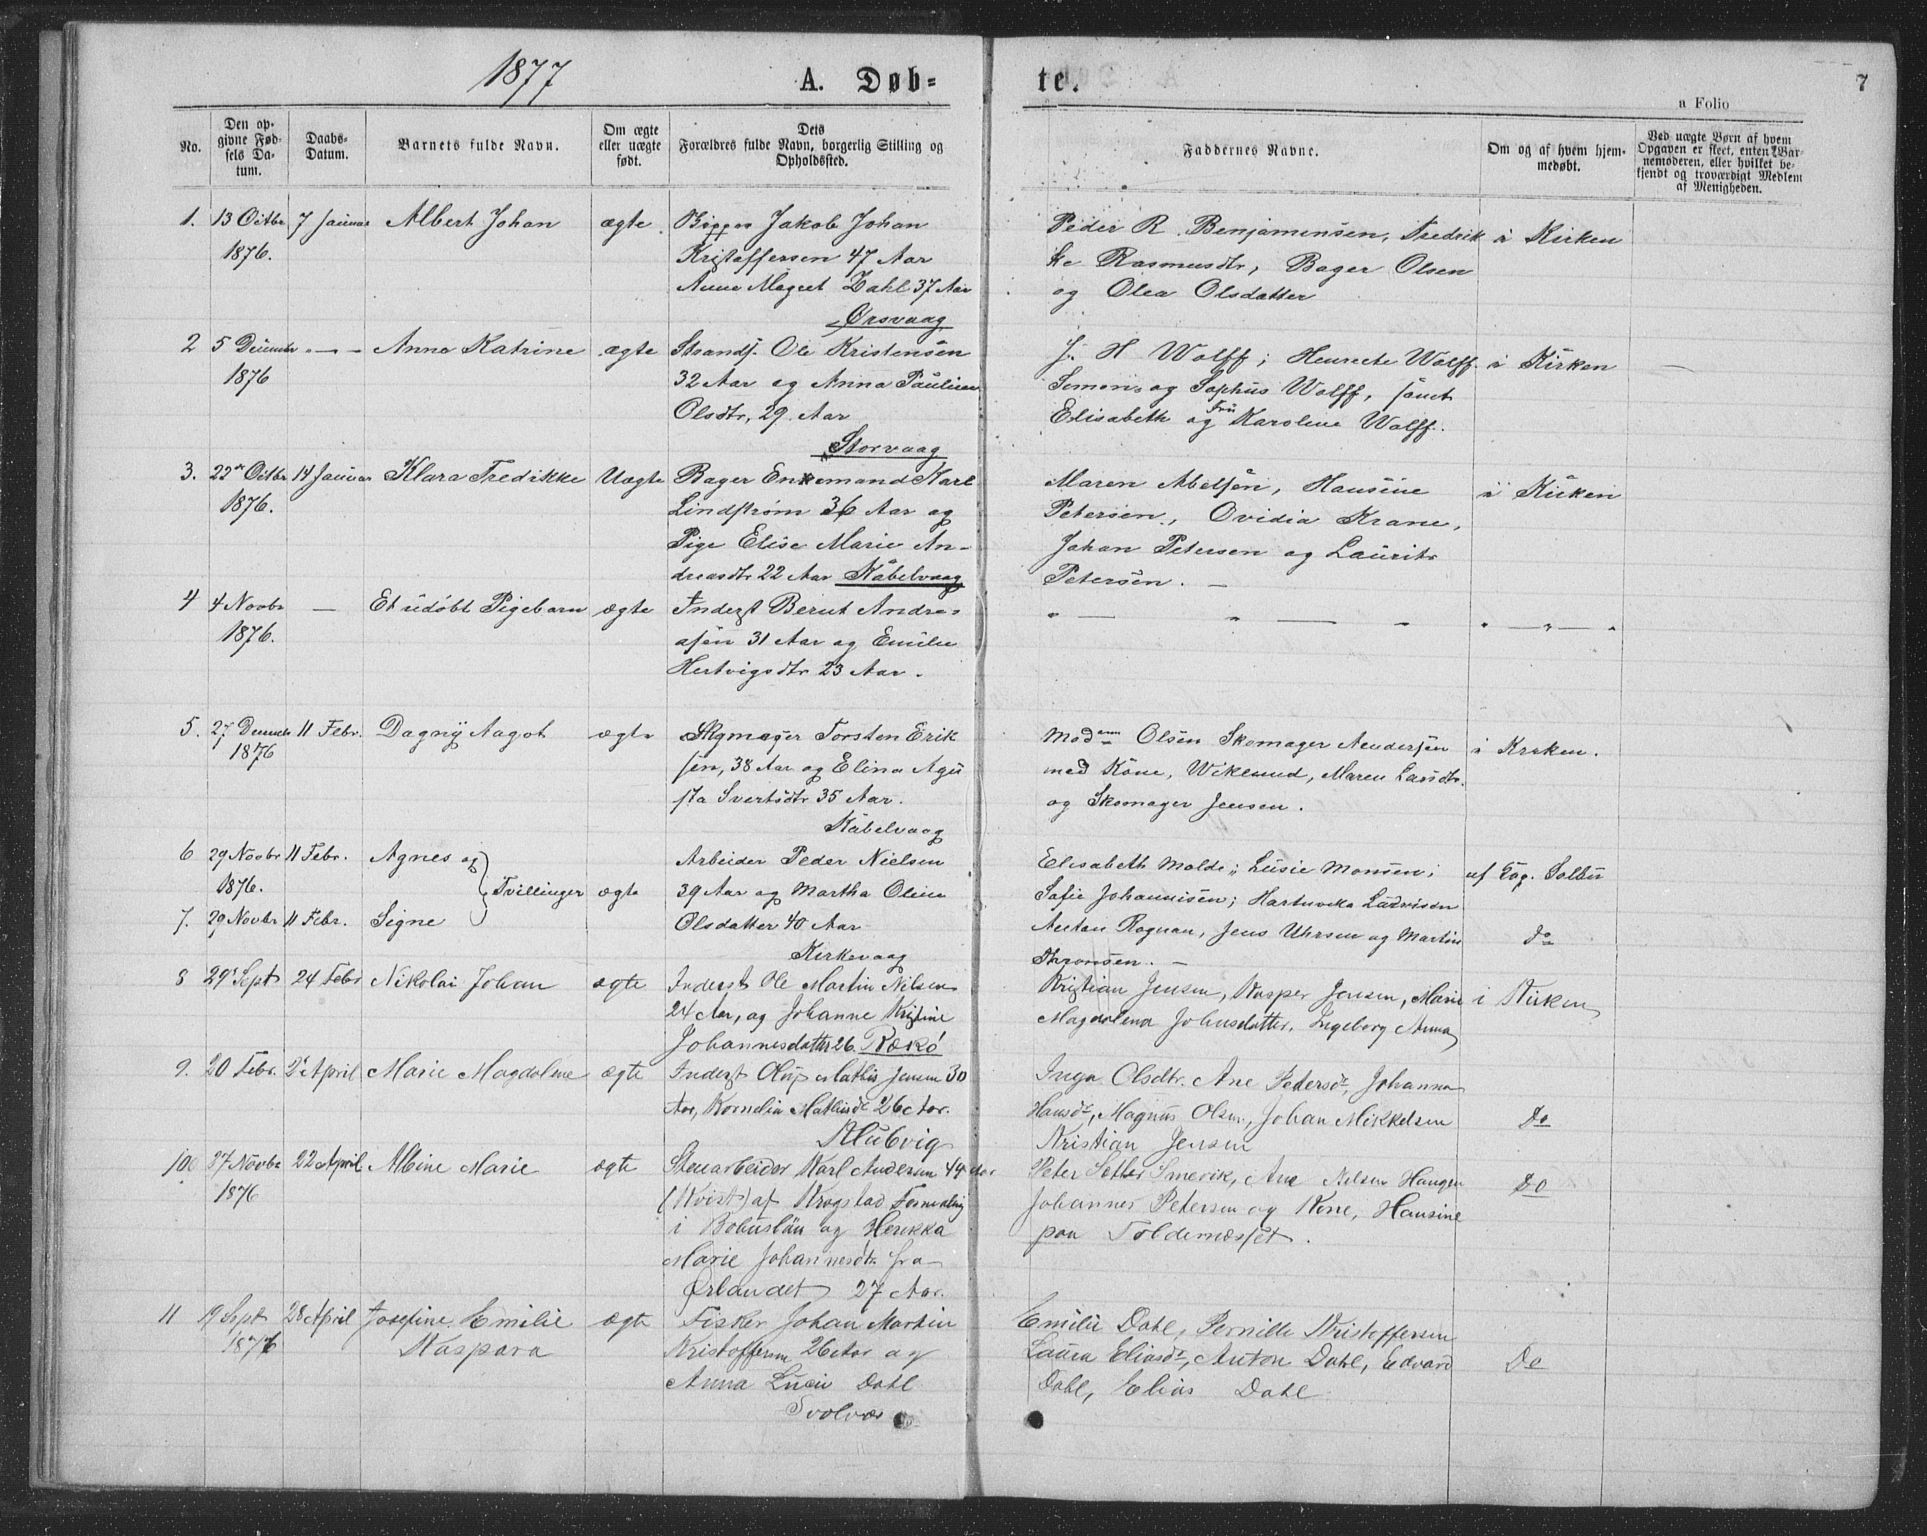 1877
A. Døb=
te.
7
a Folio
No.
Den op=
givne Fød=
sels Da=
tum.
Daabs=
Datum.
Barnets fulde Navn.
Om ægte
eller uægte
født.
Dets
Forældres fulde Navn, borgerlig Stilling og
Opholdssted.
Faddernes Navne.
Om og af hvem hjem=
medøbt.
Ved uægte Børn af hvem
Opgaven er skeet, enten Bar=
nemoderen, eller hvilket be=
kjendt og troværdigt Medlem
af Menigheden.
1. 13 Octbr 7 Januar Albert Johan ægte. Jakob Johan
1876.
Kristoffersen 47 Aar
Anne Magret Dahl 37 Aar
Ørsvaag
Peder R. Benjamensen, Fredrik
ke Rasmusdtr, Bager Olsen
og Olea Olsdatter
i Kirken
2 5 Decembr " — — Anna Katrine ægte Strands. Ole Kristensen
1876
32 Aar og Anna Pauline
Olsdtr, 29 Aar
Storvaag
J. H Wolff; Henrecte Wolff
Simon og Sophus Wolff, samt
Elisabeth og Frü Karoline Wolff.
i Kirken
3. 22de Octbr 14 Januar Klara Fredikke Uægte Bager Enkemand Karl
1876.
Lindstrøm 36 Aar og
Pige Elise Marie An-
dreasdtr 22 Aar Kabelvaag
Maren Abelsen, Hansine
Petersen, Ovidia Krane,
Johan Petersen og Laurits
Petersen. —
i Kirken
4 4 Novbr — Et udøbt Pigebarn ægte Inderst Bernt Andre-
1876.
asen 31 Aar og Emilie
Hertvigsdtr 23 Aar.
" — " — " " — " — "
5. 27 Decembr 11 Febr. Dagny Aagot ægte Skomager Torsten Erik
1876
sen, 38 Aar og Elina Agu
sta Svertsdtr 35 Aar.
Kabelvaag
Madam Olsen Skomager Andersen
med Kone, Wiklund, Maren Larsdtr.
og Skomager Jensen.
i Kirken.
6 29 Novbr 11 Febr. Agnes og
1876.
Tvillinger ægte
7. 29 Novbr 11 Febr. Signe
Arbeider Peder Nielsen
39 Aar og Martha Oline
Olsdatter 40 Aar
Kirkevaag
Elisabeth Molde; Lusie Monsen;
Safie Johannisen; Hartvika Ludvisen
Anton Rognan, Jens Uhrsen og Martin
Thronsen. —
af
do
8 29de Sept 24 Febr Nikolai Johan ægte Inderst Ole Martin Nilsen
24 Aar, og Johanne Kristine
Johannesdatter 26. Rækø
Kristian Jensen, Kasper Jensen, Marie
Magdalena Johnsdatter, Ingeborg Anna
i Kirken
9. 20 Febr. 2 April Marie Magdalene ægte Inderst Oluf Mathis Jensen 30
Aar, Kornelia Mathisdr 26 Aar.
Klubvig
Inga Olsdtr. Ane Pedersdr, Johanna
Hansdr, Magnus Olsen, Johan Mikkelsen
Kristian Jensen
Do
10 27 Novbr 22 April Albine Marie ægte Stenarbeider Karl Andersen 44 Aar
1876
(Kvist) af Krogstad Forsamling
i Bohuslän og Henrikka
Marie Johannesdtr fra
Ørlandet 27 Aar.
Peter Sæther Smevik, Ane Nilsen Haugen
Johannes Petersen og Kone, Hansine
paa Toldernæsset.
Do
11 9 Sept 28 April Josefine Emilie ægte Fisker Johan Martin
1876
Kaspara
Kristoffersen 26 Aar og
Anna Lucie Dahl
Svolvær
Emilie Dahl, Pernille Kristoffersen
Laura Eliasdr, Anton Dahl, Edvard
Dahl, Elias Dahl
Do